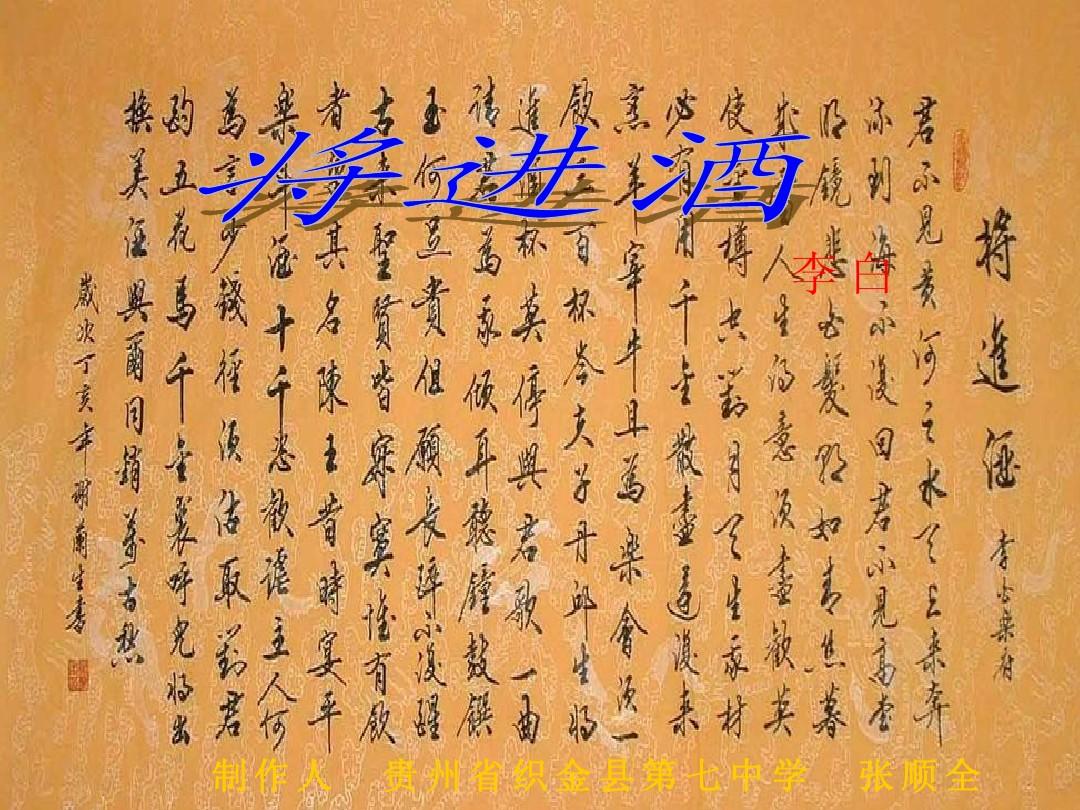 将进酒
李白
將進酒 李白樂府
君不見黃河之水天上來奔
流到海不復回君不見高堂
明鏡悲白髮朝如青絲暮
成雪人生得意須盡歡莫
使金樽空對月天生我材
必有用千金散盡還復來
烹羊宰牛且為樂會須一
飲三百杯岑夫子丹邱生將
進酒杯莫停與君歌一曲
請君為我傾耳聽鐘鼓饌
玉何足貴但願長醉不復醒
古來聖賢皆寂寞惟有飲
者留其名陳王昔時宴平
樂斗酒十千恣歡謔主人何
為言少錢徑須沽取對君
酌五花馬千金裘呼兒將出
換美酒與爾同銷萬古愁
歲次丁亥年謝蘭生書
制作人 贵州省织金县第七中学 张顺全